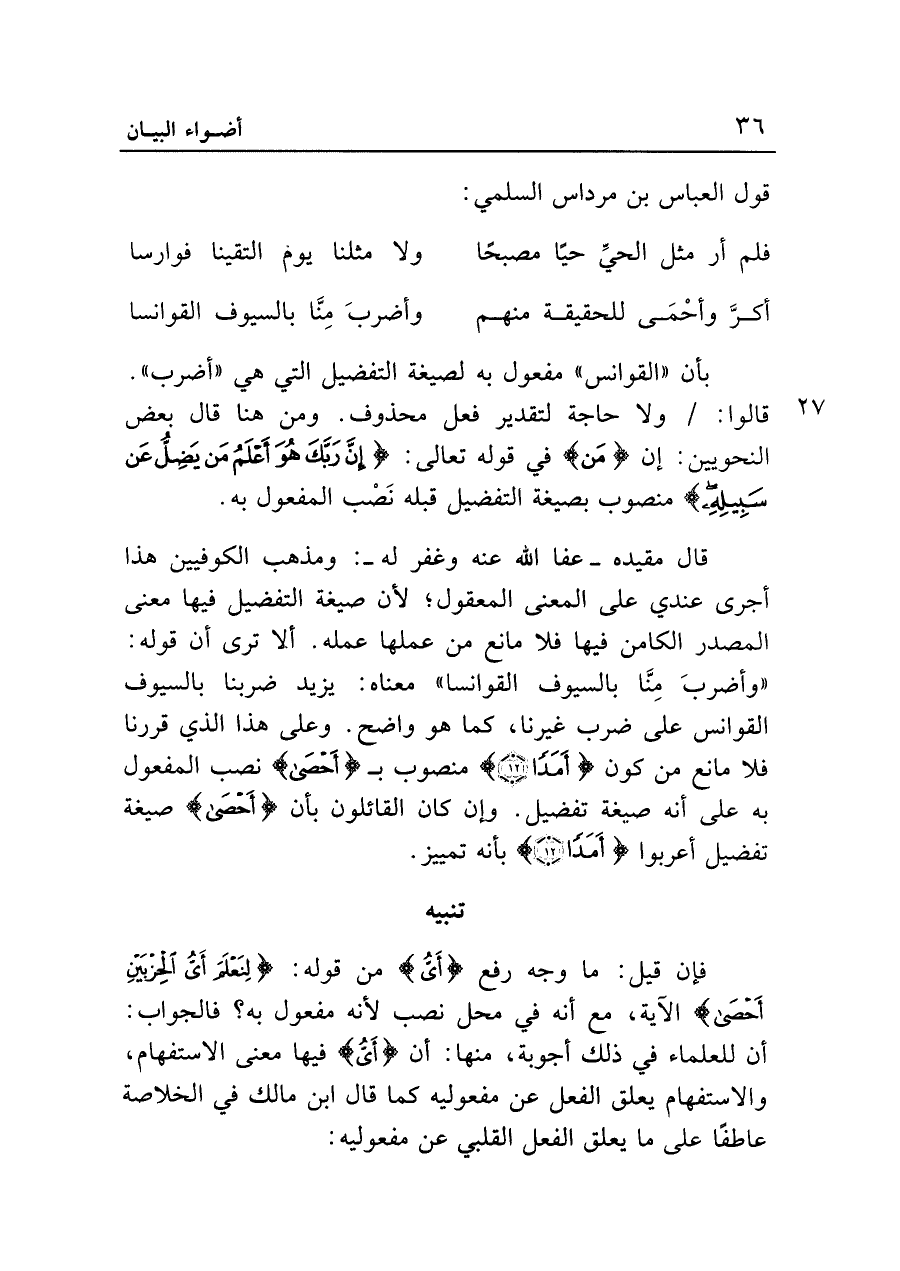 ٣٦ أضـواء البيـان
قول العباس بن مرداس السلمي:
فلم أر مثل الحيِّ حيًا مصبحًا ولا مثلنا يومَ التقينا فوارسا
أكـرَّ وأحْمَـى للحقيقـة منهـم وأضربَ مِنَّا بالسيوف القوانسا
بأن «القوانس» مفعول به لصيغة التفضيل التي هي «أضرب».
قالوا: / ولا حاجة لتقدير فعل محذوف. ومن هنا قال بعض ٢٧
النحويين: إن ﴿مَن﴾ في قوله تعالى: ﴿إِنَّ رَبَّكَ هُوَ أَعْلَمُ مَن يَضِلُّ عَن
سَبِيلِهِۦۖ﴾ منصوب بصيغة التفضيل قبله نَصْب المفعول به.
قال مقيده ـ عفا الله عنه وغفر له ـ: ومذهب الكوفيين هذا
أجرى عندي على المعنى المعقول؛ لأن صيغة التفضيل فيها معنى
المصدر الكامن فيها فلا مانع من عملها عمله. ألا ترى أن قوله:
«وأضربَ مِنَّا بالسيوف القوانسا» معناه: يزيد ضربنا بالسيوف
القوانس على ضرب غيرنا، كما هو واضح. وعلى هذا الذي قررنا
فلا مانع من كون ﴿أَمَدًا ١٢﴾ منصوب بـ ﴿أَحْصَىٰ﴾ نصب المفعول
به على أنه صيغة تفضيل. وإن كان القائلون بأن ﴿أَحْصَىٰ﴾ صيغة
تفضيل أعربوا ﴿أَمَدًا ١٢﴾ بأنه تمييز.
تنبيه
فإن قيل: ما وجه رفع ﴿أَيُّ﴾ من قوله: ﴿لِنَعْلَمَ أَيُّ ٱلْحِزْبَيْنِ
أَحْصَىٰ﴾ الآية، مع أنه في محل نصب لأنه مفعول به؟ فالجواب:
أن للعلماء في ذلك أجوبة، منها: أن ﴿أَيُّ﴾ فيها معنى الاستفهام،
والاستفهام يعلق الفعل عن مفعوليه كما قال ابن مالك في الخلاصة
عاطفًا على ما يعلق الفعل القلبي عن مفعوليه: